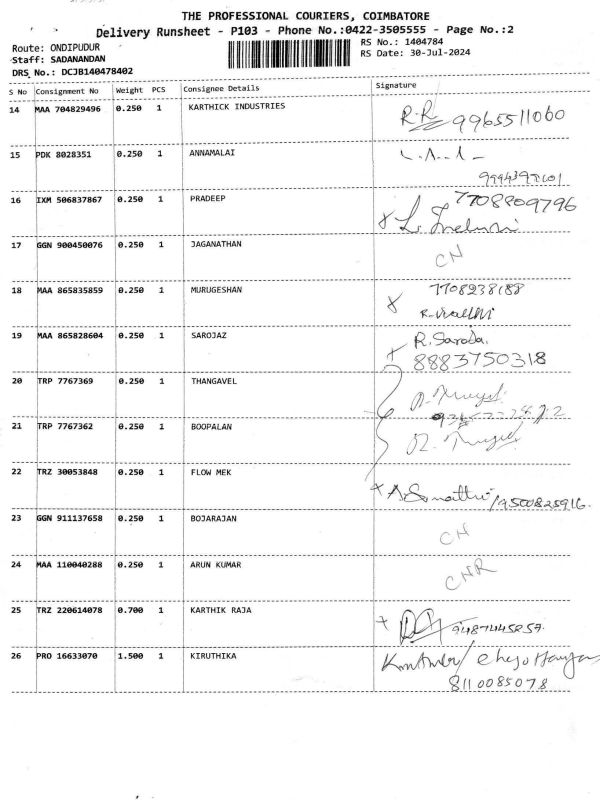 THE PROFESSIONAL COURIERS, COIMBATORE
Delivery Runsheet - P103 - Phone No.:0422-3505555 - Page No.:2
Route: ONDIPUDUR
RS No.: 1404784
Staff: SADANANDAN
RS Date: 30-Jul-2024
DRS No.: DCJB140478402
S No Consignment No Weight PCS Consignee Details Signature
14 MAA 704829496 0.250 1 KARTHICK INDUSTRIES R.R 9965511060
15 PDK 8028351 0.250 1 ANNAMALAI
16 IXM 506837867 0.250 1 PRADEEP 7708809796
17 GGN 900450076 0.250 1 JAGANATHAN CN
18 MAA 865835859 0.250 1 MURUGESHAN 7708238188
19 MAA 865828604 0.250 1 SAROJAZ R. Saroja.
8883750318
20 TRP 7767369 0.250 1 THANGAVEL
21 TRP 7767362 0.250 1 BOOPALAN
22 TRZ 30053848 0.250 1 FLOW MEK 9500825916
23 GGN 911137658 0.250 1 BOJARAJAN CN
24 MAA 110040288 0.250 1 ARUN KUMAR CNR
25 TRZ 220614078 0.700 1 KARTHIK RAJA 9487445857
26 PRO 16633070 1.500 1 KIRUTHIKA
8110085078